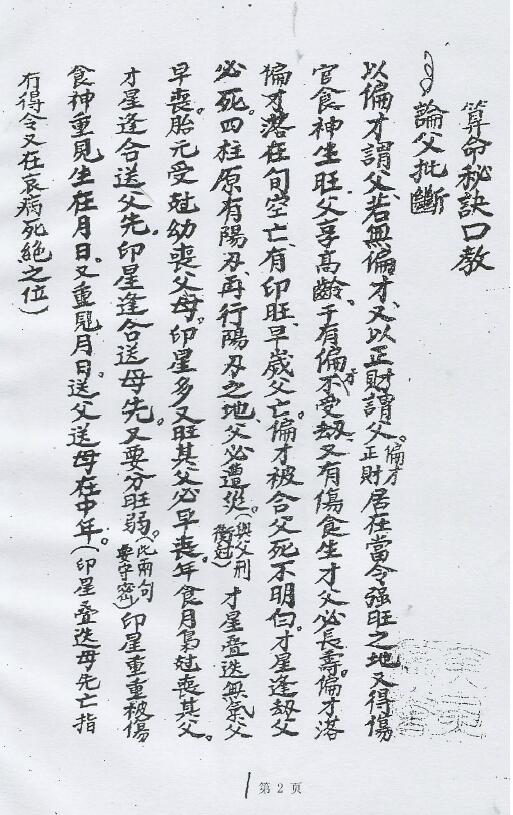 算命秘訣口教
論父批斷
以偏才謂父、若無偏才、又以正財謂父。偏才正財居在當令强旺之地又得傷
官食神坐旺、父享高齡。干有偏才方受刼、又有傷食生才父必長壽。偏才落
偏才落在旬空亡、有印旺、早歲父亡。偏才被合父死不明白。才星逢刼父
必死。四柱原有陽刄、再行陽刄之地、父必遭災。(與父刑衝尅)才星叠迭無氣父
早喪。胎元受尅幼喪父母。印星多又旺其父必早喪。年食月梟尅喪其父。
才星逢合送父先。印星逢合送母先。又要分旺弱。(此兩句要守密)印星重重被傷
食神重見坐在月日。又重見月日。送父送母在中年。(印星叠迭母先亡指
有得令又在衰病死絕之位)
第 2 页